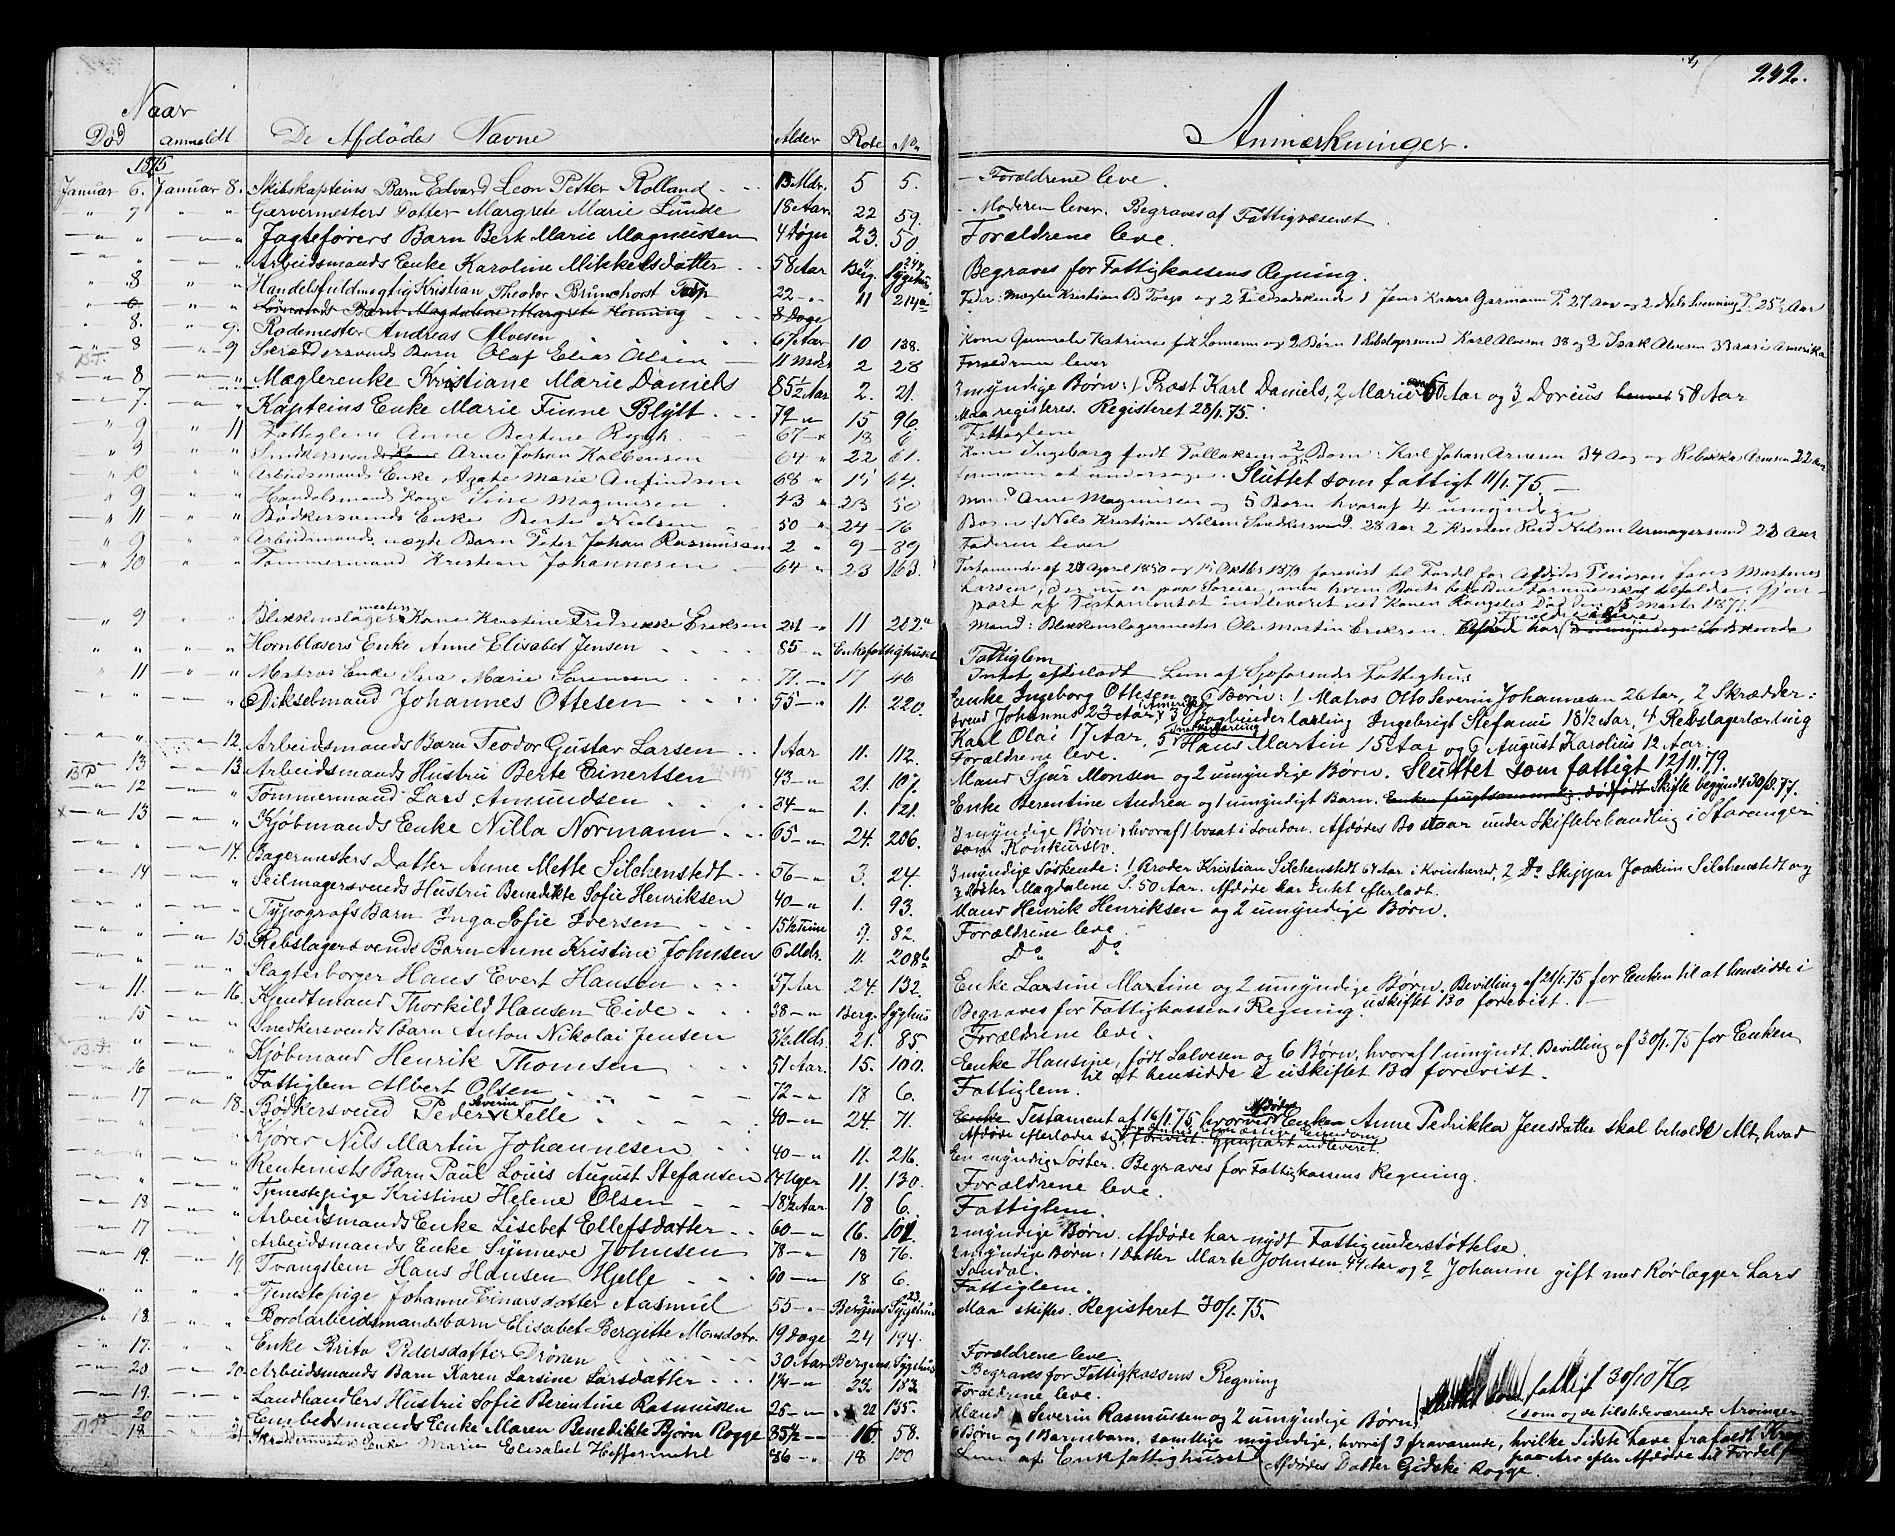 242.
Naar
Død Anmeldt De Afdødes Navne Alder Rode No. Anmærkninger.
1875
Januar 6. Januar 8. Skibskapteins Barn Edvard Leon Petter Rolland 13 Mdr. 5 5. Forældrene leve.
" 7 " " Garvermesters Datter Margrete Marie Lunde 18 Aar 22 59. Moderen lever. Begraves af Fattigvæsenet.
" " " " Jagteførers Barn Berk Marie Magnussen 4 Døgn 23. 50 Forældrene leve.
" " " Arbeidsmands Enke Karoline Mikkelsdatter 58 Aar Berg. Sygehus Begraves for Fattigkassens Regning.
" 8 " " Handelsfuldmægtig Kristian Theodor Brunchorst 22 " 11 214a Fader: Mægler Kristian B og 2 1 Jens 27 Aar og 2 Nels 25½ Aar
" 6. " " Barn Magdalene Margrete Hornung 8 Dage
" 8. " 9. Rodemester Andreas Alvesen 67 Aar 10 138. Kone Gunnele Katrine født og 2 Børn 1 Rebslagersvend Karl Alvesen 38 og 2 Isak Alvesen 33 Aar i Amerika
" 8 " 9 Skræddersvends Barn Olaf Elias Olsen 11 Mdr 2 28 Forældrene lever
" 8 " " Mæglerenke Kristiane Marie Daniels 85½ Aar 2. 21. 3 myndige Børn: 1 Præst Karl Daniels, 2 Marie 60 Aar og 3 Dorius 58 Aar
" 7. " " Kapteins Enke Marie Finne Blytt 79 " 15 96. Maa registeres. Registeret 28/1.75.
" 9 " 11 Fattiglem Anne Bertine 67 " 18 6. Fattiglem
" 9 " " Snedkersvend Arne Johan Kolbensen 64 " 22 61. Kone Ingeborg født Tollaksen og 2 Børn: Karl Johan Arnesen 34 Aar og Rebekka Arnesen 22 Aar
" 10 " " Arbeidsmands Enke Agate Marie Anfindsen 68 " 15 64. Sluttet som fattigt 11/1.75.
" 9 " " Handelsmands Kone Magnusen 43 " 23 50 Mand Arne Magnusen og 5 Børn hvoraf 4 umyndige
" 11 " " Bødkersvends Enke Berte Nielsen 50 " 24 16 Børn: 1 Nels Kristian Nilsen Snedkersvend. 28 Aar 2 Kristen Reid Nilsen Urmagersvend 23 Aar
" 9 " " Arbeidsmands uægte Barn Peter Johan Rasmussen 2 " 9 89 Faderen lever
" 10 " " Tømmermand Kristian Johannesen 64 " 23 163. Testamenter af 27 April 1850 og 15 Oktbr 1870 forevist til Fordel for Afdødes Jans Martenes
Larsen, der nu er paa Soreise, men hvem Boets beholdne Formue skal tilfalde. Gjen-
part af Testamentet indleveret ved Konen Død den 8 Marts 1871.
" 9 " " Blikkenslagermesters Kone Kristine Fredrikke Eriksen 24 " 11 212a Mand: Blikkenslagermester Ole Martin Eriksen.
" " " " Hornblæsers Enke Anne Elisabet Jensen 85 " Enkefattighuset Fattiglem
" 11 " " Matros Enke Sara Marie Sørensen 77. " 17 46 Intet efterladt Lem af Sjøfarendes Fattighus
" " " " Dikselmand Johannes Ottesen 55 " 11. 220. Enke Ingeborg Ottesen og 6 Børn: 1 Matros Otto Severin Johannesen 26 Aar, 2 Skrædder-
svend Johannes 23 Aar i Amerika, 3 Bogbinderlærling Ingebrigt Stefanus 18½ Aar, 4 Rebslagerlærling
Karl Olai 17 Aar, 5 Snedkerlærling Hans Martin 15 Aar og 6 August Karolius 12 Aar.
" " " 12. Arbeidsmands Barn Teodor Gustav Larsen 1 Aar 11. 112. Forældrene leve.
" 13 " 13. Arbeidsmands Hustru Berte Einertsen 43 " 21. 107. Mand Sjur Monsen og 2 umyndige Børn. Sluttet som fattigt 12/11.79.
" 12 " " Tømmermand Lars Amundsen 34 " 1. 121. Enke Berentine Andrea og 1 umyndigt Barn. Enken frugtsommelig. dødfødt Skifte begyndt 30/8.77.
" 13 " " Kjøbmands Enke Nilla Normann 65 " 24. 206. 3 myndige Børn, hvoraf 1 bosat i London. Afdødes Bo staar under Skiftebehandling i Stavanger
som Konkursbo.
" " " 14. Bagermesters Datter Anne Mette Silchenstedt 56 " 3. 24. 3 myndige Søskende: 1 Broder Kristian Silchenstedt 67 Aar i Kvinherred, 2 Do Skipper Joakim Silchenstedt og
3 Søster Magdalene S. 50 Aar. Afdøde har Intet efterladt.
" 14 " " Seilmagersvends Hustru Benedikte Sofie Henriksen 40 " 1. 93. Mand Henrik Henriksen og 2 umyndige Børn.
" " " " Typografs Barn Inga Sofie Iversen 15½ Time 9. 82. Forældrene leve.
" " " 15. Rebslagersvends Barn Anne Kristine Johnsen 6 Mdr. 11. 208b Do Do
" " " " Slagterborger Hans Evert Hansen 37 Aar 24. 132. Enke Larsine Martine og 2 umyndige Børn. Bevilling af 21/1.75 for Enken til at hensidde i
uskiftet Bo forevist.
" 11. " 16. Kjendtmand Thorkild Hansen Eide 38 " Berg. Sygehus Begraves for Fattigkassens Regning.
" 15 " " Snedkersvends Barn Anton Nikolai Jensen 3½ Mdr. 21. 85 Forældrene leve.
" " " " Kjøbmand Henrik Thomsen 51 Aar. 15. 100. Enke Hansine, født Salvesen og 6 Børn, hvoraf 1 umyndt. Bevilling af 30/1.75 for Enken
til at hensidde i uskiftet Bo forevist.
" 16 " " Fattiglem Albert Olsen 72 " 18 6. Fattiglem.
" 17 " 18. Bødkersvend Peder Severin Felle 40 " 24. 71. Testament af 16/1.75, hvorved Afdødes Enken Anne Pedrikka Jensdatter skal beholde Alt, hvad
Afdøde efterlader sig. forevist. Gjenpart indleveret.
" " " " Kjører Nils Martin Johannesen 40 " 11. 216. En myndig Søster. Begraves for Fattigkassens Regning.
" " " " Rentenists Barn Paul Louis August Stefansen 14 Uger 11. 130. Forældrene leve.
" 18 " " Tjenestepige Kristine Helene Olsen 18½ Aar 18 6. Fattiglem.
" 17 " " Arbeidsmands Enke Lisebet Ellefsdatter 60 " 16. 101. 2 myndige Børn. Afdøde har nydt Fattigunderstøttelse.
" " " " Arbeidsmands Enke Synneve Johnsen 78 " 18 76. 2 myndige Børn: 1 Datter Marte Johnsen, 44 Aar og 2 Johanne gift med Rørlægger Lars
Sandal.
" 19. " 19. Tvangslem Hans Hansen Hjelle 60 " 18 6. Fattiglem.
" " " " Tjenestepige Johanne Einarsdatter Aasmul 55 " Bergens Sygehus Maa skiftes. Registeret 30/1.75.
" 18. " " Bordarbeidsmandsbarn Elisabet Bergitte Monsdatr. 19 Dage 24 194. Forældrene leve.
" 17. " " Enke Brita Pedersdatter Drønen 30 Aar Bergens Sygehus Begraves for Fattigkassens Regning
" 20 " 20. Arbeidsmands Barn Karen Larsine Larsdatter 1¼ " 23. 183. Forældrene leve.
" 19. " " Landhandlers Hustru Sofie Berentine Rasmussen 25 " 22 135. Mand Severin Rasmussen og 2 umyndige Børn. Sluttet som fattigt 30/10 76.
" 20 " " Embedsmands Enke Maren Benedikte Bjørn Rogge 85½ " 16 58. 6 Børn og 1 Barnebarn, samtlige myndige, hvoraf 3 fraværende, hvilke Sidste have frafaldt
som og de tilstedeværende Arvinger
paa Arv efter Afdøde til Fordel f
" 18 " 21 Skræddermester Enke Maren Elisabet Heffermehl 86 " 18 100 Lem af Enkefattighuset Afdødes Datter Gidski Rogge.